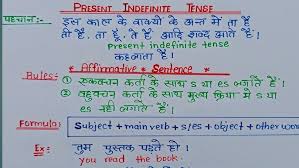 PRESENT INDEFINITE TENSE
पहचान:- इस काल के वाक्यों के अन्त में ता है
ती है, ता हूँ, ते हैं आदि शब्द आते हैं।
Present indefinite tense
कहलाता है
* Affirmative Sentence *
Rules: ① एकवचन कर्ता के साथ s या es लगाते हैं।
② बहुवचन कर्ता के साथ मुख्य क्रिया में s या
es नहीं लगाते हैं।
Formula: Subject + main verb + s/es + object + other wor
Ex:- तुम पुस्तक पढ़ते हो।
you read the book.